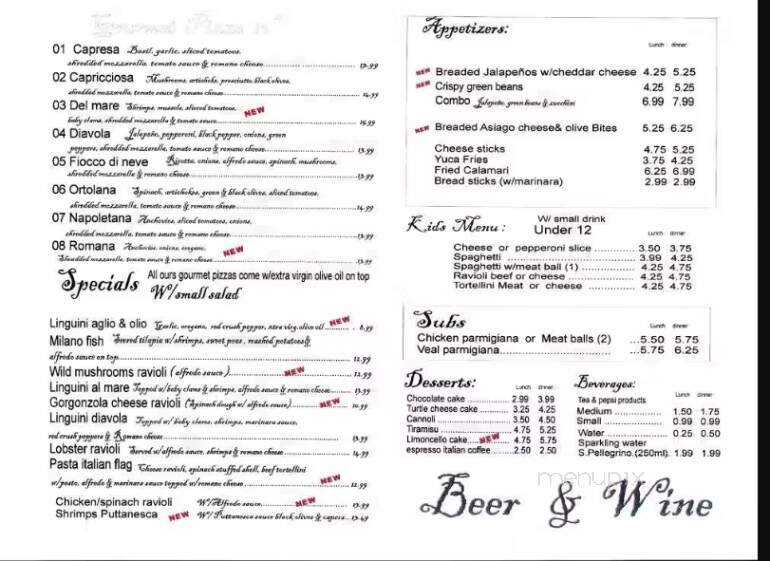 Gourmet Pizza
01 Capresa Basil, garlic, sliced tomatoes,
shredded mozzarella, tomato sauce & romano cheese 13.99
02 Capricciosa Mushrooms, artichoke, prosciutto, black olives,
shredded mozzarella, tomato sauce & romano cheese 14.99
03 Del mare Shrimps, mussels, sliced tomatoes, NEW
baby clams, shredded mozzarella & tomato sauce 15.99
04 Diavola Jalapeño, pepperoni, black pepper, onions, green
peppers, shredded mozzarella, tomato sauce & romano cheese 13.99
05 Fiocco di neve Ricotta, onions, alfredo sauce, spinach, mushrooms,
shredded mozzarella & romano cheese 13.99
06 Ortolana Spinach, artichokes, green & black olives, sliced tomatoes,
shredded mozzarella, tomato sauce & romano cheese 14.99
07 Napoletana Anchovies, sliced tomatoes, onions,
shredded mozzarella, tomato sauce & romano cheese 13.99
08 Romana Anchovies, onions, oregano, NEW
Shredded mozzarella, tomato sauce & romano cheese 13.99
Specials All ours gourmet pizzas come w/extra virgin olive oil on top
W/small salad
Linguini aglio & olio Garlic, oregano, red crush pepper, xtra virg. olive oil NEW 8.99
Milano fish Seared tilapia w/shrimps, sweet peas, mashed potatoes &
alfredo sauce on top 12.99
Wild mushrooms ravioli (alfredo sauce) NEW 12.99
Linguini al mare Topped w/baby clams & shrimps, alfredo sauce & romano cheese 13.99
Gorgonzola cheese ravioli (Spinach dough w/ alfredo sauce) NEW 14.99
Linguini diavola Topped w/ baby clams, shrimps, marinara sauce,
red crush peppers & Romano cheese 13.99
Lobster ravioli Served w/ alfredo sauce, shrimps & romano cheese 14.99
Pasta italian flag Cheese ravioli, spinach stuffed shell, beef tortellini
w/pesto, alfredo & marinara sauce topped w/romano cheese NEW 12.99
Chicken/spinach ravioli W/Alfredo sauce NEW 13.99
Shrimps Puttanesca NEW W/Puttanesca sauce black olives & capers 13.49
Appetizers:
Lunch dinner
NEW Breaded Jalapeños w/cheddar cheese 4.25 5.25
NEW Crispy green beans 4.25 5.25
Combo Jalapeño, green beans & zucchini 6.99 7.99
NEW Breaded Asiago cheese& olive Bites 5.25 6.25
Cheese sticks 4.75 5.25
Yuca Fries 3.75 4.25
Fried Calamari 6.25 6.99
Bread sticks (w/marinara) 2.99 2.99
Kids Menu: W/ small drink
Under 12 Lunch dinner
Cheese or pepperoni slice 3.50 3.75
Spaghetti 3.99 4.25
Spaghetti w/meat ball (1) 4.25 4.75
Ravioli beef or cheese 4.25 4.75
Tortellini Meat or cheese 4.25 4.75
Subs Lunch dinner
Chicken parmigiana or Meat balls (2) ...5.50 5.75
Veal parmigiana ...5.75 6.25
Desserts: Lunch dinner
Chocolate cake 2.99 3.99
Turtle cheese cake 3.25 4.25
Cannoli 3.50 4.50
Tiramisu 4.75 5.25
Limoncello cake NEW 4.75 5.75
espresso italian coffee 2.50 2.50
Beverages:
Tea & pepsi products Lunch dinner
Medium 1.50 1.75
Small 0.99 0.99
Water 0.25 0.50
Sparkling water
S.Pellegrino.(250ml). 1.99 1.99
menupix
Beer & Wine